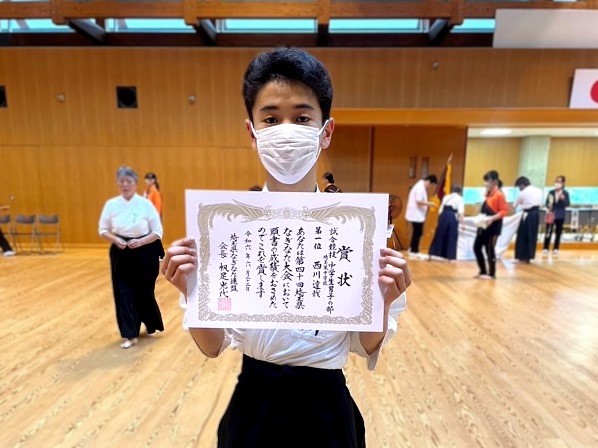 賞状
試合競技 中学生男子の部
第一位
西川達哉
あなたは第四十回埼玉県
なぎなた大会において
頭書の成績をおさめた
のでこれを賞します
埼玉県なぎなた連盟
会長